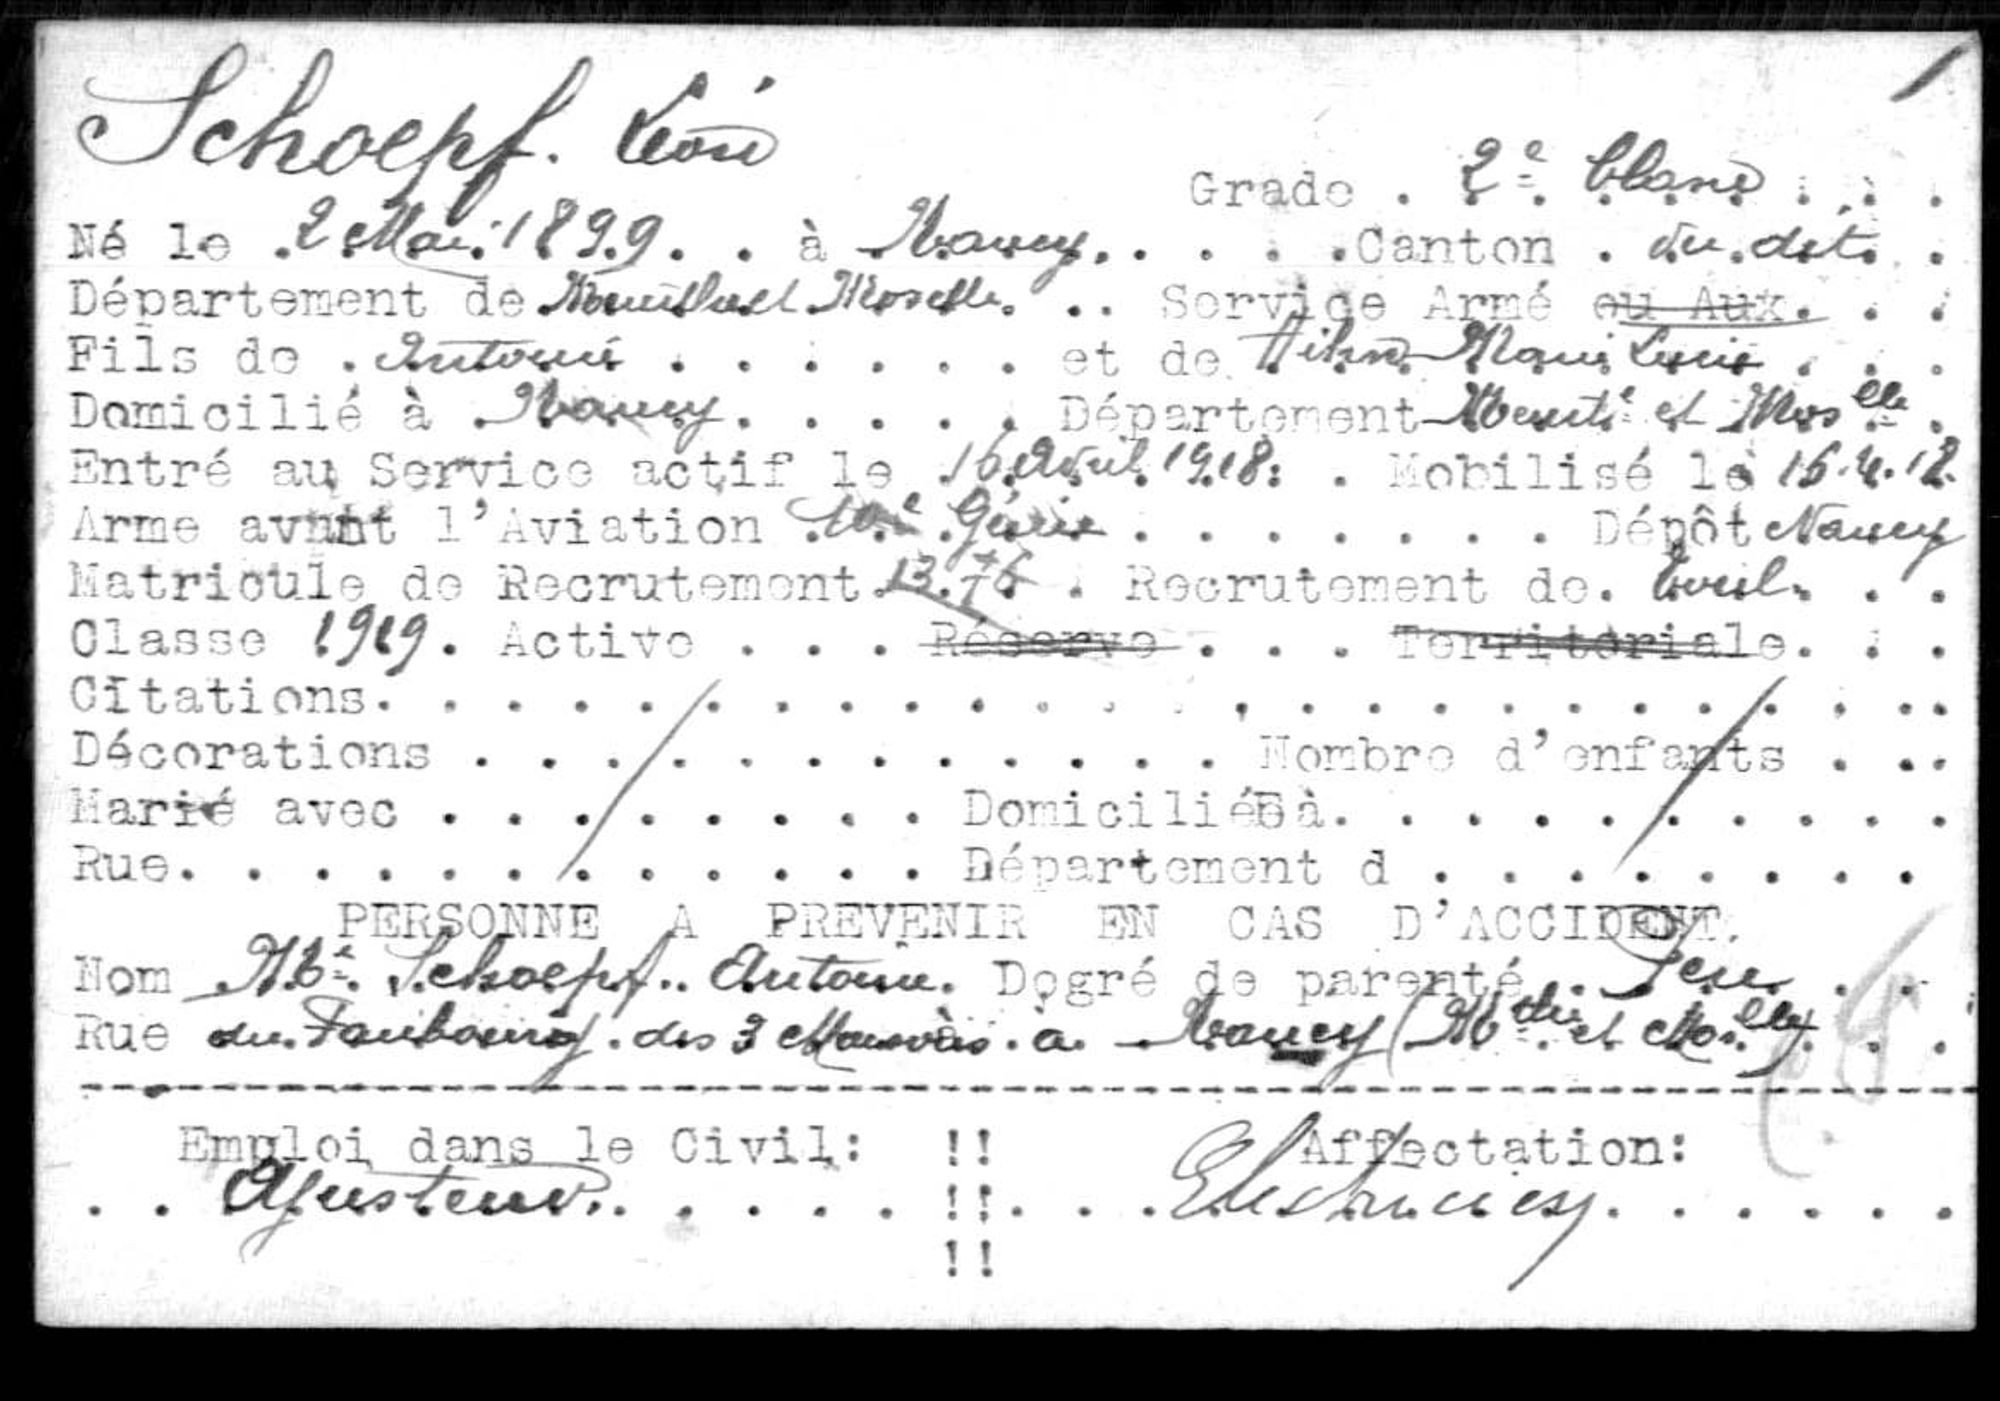 Schoepf. Léon
Grade . 2e Classe . . .
Né le 2 Mai 1899 . . à Nancy . . . . Canton . du dit .
Département de Meurthe et Moselle . .. Service Armé ou Aux. . .
Fils de . Antoine . . . . . . et de Hihn Marie Lucie . . .
Domicilié à . Nancy . . . . . Département Meurthe et Moselle .
Entré au Service actif le 16 Avril 1918 . . Mobilisé le 16.4.18.
Arme avant l'Aviation 10e Génie . . . . . . . Dépôt Nancy
Matricule de Recrutement . Recrutement de . Toul . . .
Classe 1919 . Active . . . Réserve . . . Territoriale. . .
Citations. . . . . . . . . . . . . . . . . . . . . . . ..
Décorations . . . . . . . . . . . . Nombre d'enfants . ..
Marié avec . . . . . . . . Domiciliée à. . . . . . . . . .
Rue. . . . . . . . . . . . Département d . . . . . . . .
PERSONNE A PREVENIR EN CAS D'ACCIDENT.
Nom Schoepf .. Antoine. Degré de parenté . Père . . .
Rue du Faubourg . des 3 Maisons . à Nancy (Mthe et Moselle) . .
Emploi dans le Civil: !! Affectation:
. . Ajusteur . . . . . !! . . . Electricien . . . . . .
!!